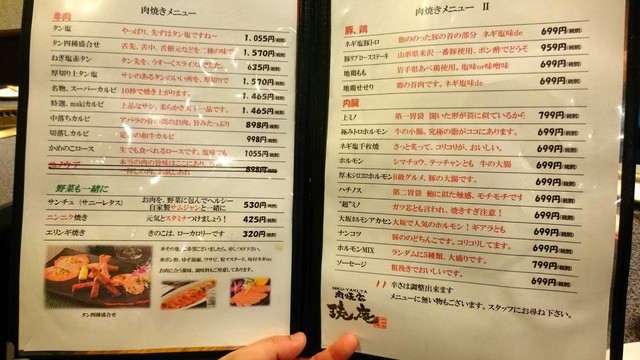 肉焼きメニュー
牛肉
タン塩 やっぱり、先ずはタン塩ですね～ 1,055円(税別)
タン四種盛合せ 舌先、舌中、舌根元などを二種の味で 1,570円(税別)
ねぎ塩赤タン タン先を、うすーくスライスしました。 635円(税別)
厚切り上タン塩 サシのあるタンのいい所を、厚切りで 1,570円(税別)
名物、スーパーカルビ 10秒で焼き上がります。 1,465円(税別)
特選、makiカルビ 上品なサシ、柔らかさNo1一品です。 1,465円(税別)
中落ちカルビ アバラの骨の間のお肉。旨みたっぷり 898円(税別)
切落しカルビ の和牛カルビ 998円(税別)
かめのこロース 生でも食べれるロースです。塩味でも 1055円(税別)
898円(税別)
野菜も一緒に
サンチュ (サニーレタス) お肉を、野菜に包んでヘルシー
自家製サムジャンと一緒に 530円(税別)
ニンニク焼き 元気とスタミナつけましょう! 425円(税別)
エリンギ焼き きのこは、ローカロリーです 320円(税別)
タン四種盛合せ
肉焼きメニュー Ⅱ
豚、鶏
ネギ塩豚トロ 脂ののった豚の首の部分 ネギ塩味de 699円(税別)
豚リブロースステーキ 山形県米沢一番豚使用。ポン酢でどうぞ 959円(税別)
地鶏もも 岩手県あべ鶏使用。塩味or味噌味 699円(税別)
地鶏せせり 鶏の首肉です。ネギ塩味de 699円(税別)
内臓
上ミノ 第一胃袋 開いた形が蓑に似ているから 799円(税別)
極みトロホルモン 牛の小腸。究極の脂がココにあります。 699円(税別)
ネギ塩千枚焼 さっと炙って、コリコリが、おいしい。 699円(税別)
ホルモン シマチョウ、テッチャンとも 牛の大腸 699円(税別)
厚木シロコロホルモン B級グルメ、豚の大腸です。 699円(税別)
ハチノス 第二胃袋 鮑に似た触感、モチモチです 699円(税別)
"超"ミノ ガツ芯とも言われ、焼きすぎ注意! 699円(税別)
大坂ホルモンアカセン 大坂で人気のホルモン!ギアラとも 699円(税別)
ナンコツ 豚ののどちんこです。コリコリしてます。 699円(税別)
ホルモンMIX ランダムに5種類。大盛りです。 799円(税別)
ソーセージ 粗挽きでおいしいです。 699円(税別)
辛さは調整出来ます
メニューに無い物もございます。スタッフにお尋ね下さい。
NIKU-YAKI-YA
肉焼屋